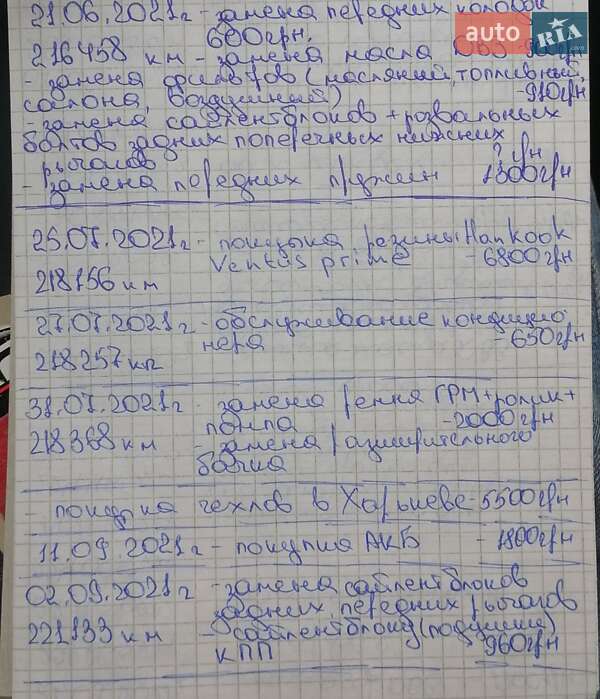 21.06.2021г - замена передних колодок
600грн.
216458 км - замена масла
- замена фильтров (масляный, топливный,
салона, воздушный) -910грн
- замена сайлентблоков + розвальных
болтов задних поперечных нижних
рычагов ? грн
- замена передних пружин 1300грн
25.07.2021г - покупка резины Hankook
Ventus prime - 6800грн
218156 км
27.07.2021г - обслуживание кондицио
нера - 650грн
218257км
31.07.2021г - замена ремня ГРМ+ролик+
помпа -2000грн
218368км - замена разширительного
бачка
- покупка чехлов в Харькеве-5500грн
11.09.2021г - покупка АКБ - 1800грн
02.09.2021г - замена сайлентблоков
задних, передних рычагов
221133 км - сайлентблоки (подушки)
КПП 960грн
auto RIA.com